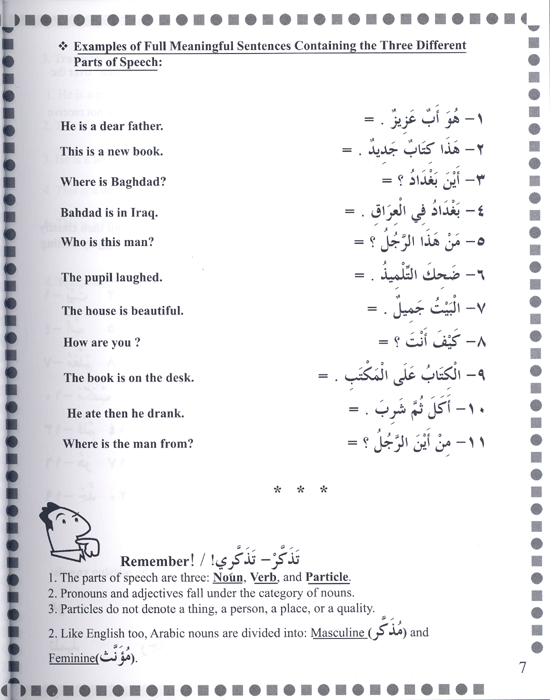 ❖ Examples of Full Meaningful Sentences Containing the Three Different
Parts of Speech:
He is a dear father. = ١- هُوَ أَبٌ عَزِيزٌ .
This is a new book. = ٢- هَذَا كِتَابٌ جَدِيدٌ .
Where is Baghdad? = ٣- أَيْنَ بَغْدَادُ ؟
Bahdad is in Iraq. = ٤- بَغْدَادُ فِي الْعِرَاقِ .
Who is this man? = ٥- مَنْ هَذَا الرَّجُلُ ؟
The pupil laughed. = ٦- ضَحِكَ التِّلْمِيذُ .
The house is beautiful. = ٧- الْبَيْتُ جَمِيلٌ .
How are you ? = ٨- كَيْفَ أَنْتَ ؟
The book is on the desk. = ٩- الْكِتَابُ عَلَى الْمَكْتَبِ .
He ate then he drank. = ١٠- أَكَلَ ثُمَّ شَرِبَ .
Where is the man from? = ١١- مِنْ أَيْنَ الرَّجُلُ ؟
* * *
Remember! / !تَذَكَّرْ- تَذَكَّرِي
1. The parts of speech are three: Noun, Verb, and Particle.
2. Pronouns and adjectives fall under the category of nouns.
3. Particles do not denote a thing, a person, a place, or a quality.
2. Like English too, Arabic nouns are divided into: Masculine (مُذَكَّر) and
Feminine(مُؤَنَّث).
7